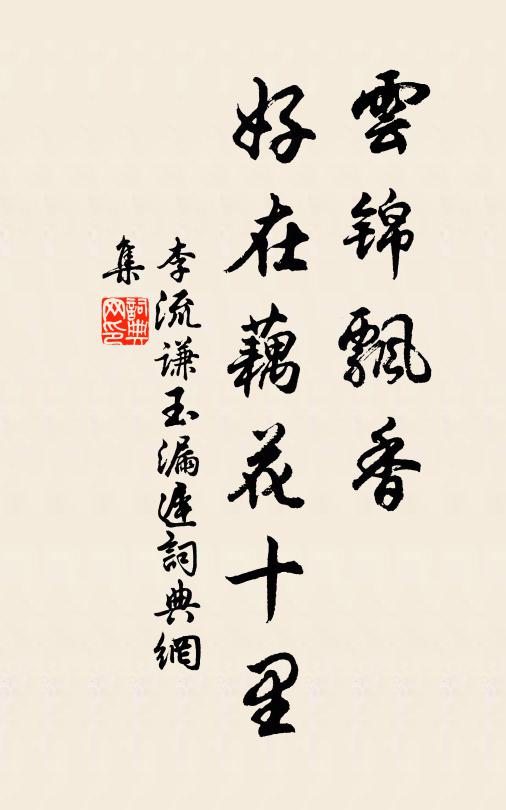 雲錦飄香
好在藕花十里
李流謙玉漏遲詞典網
集
詞典
网印